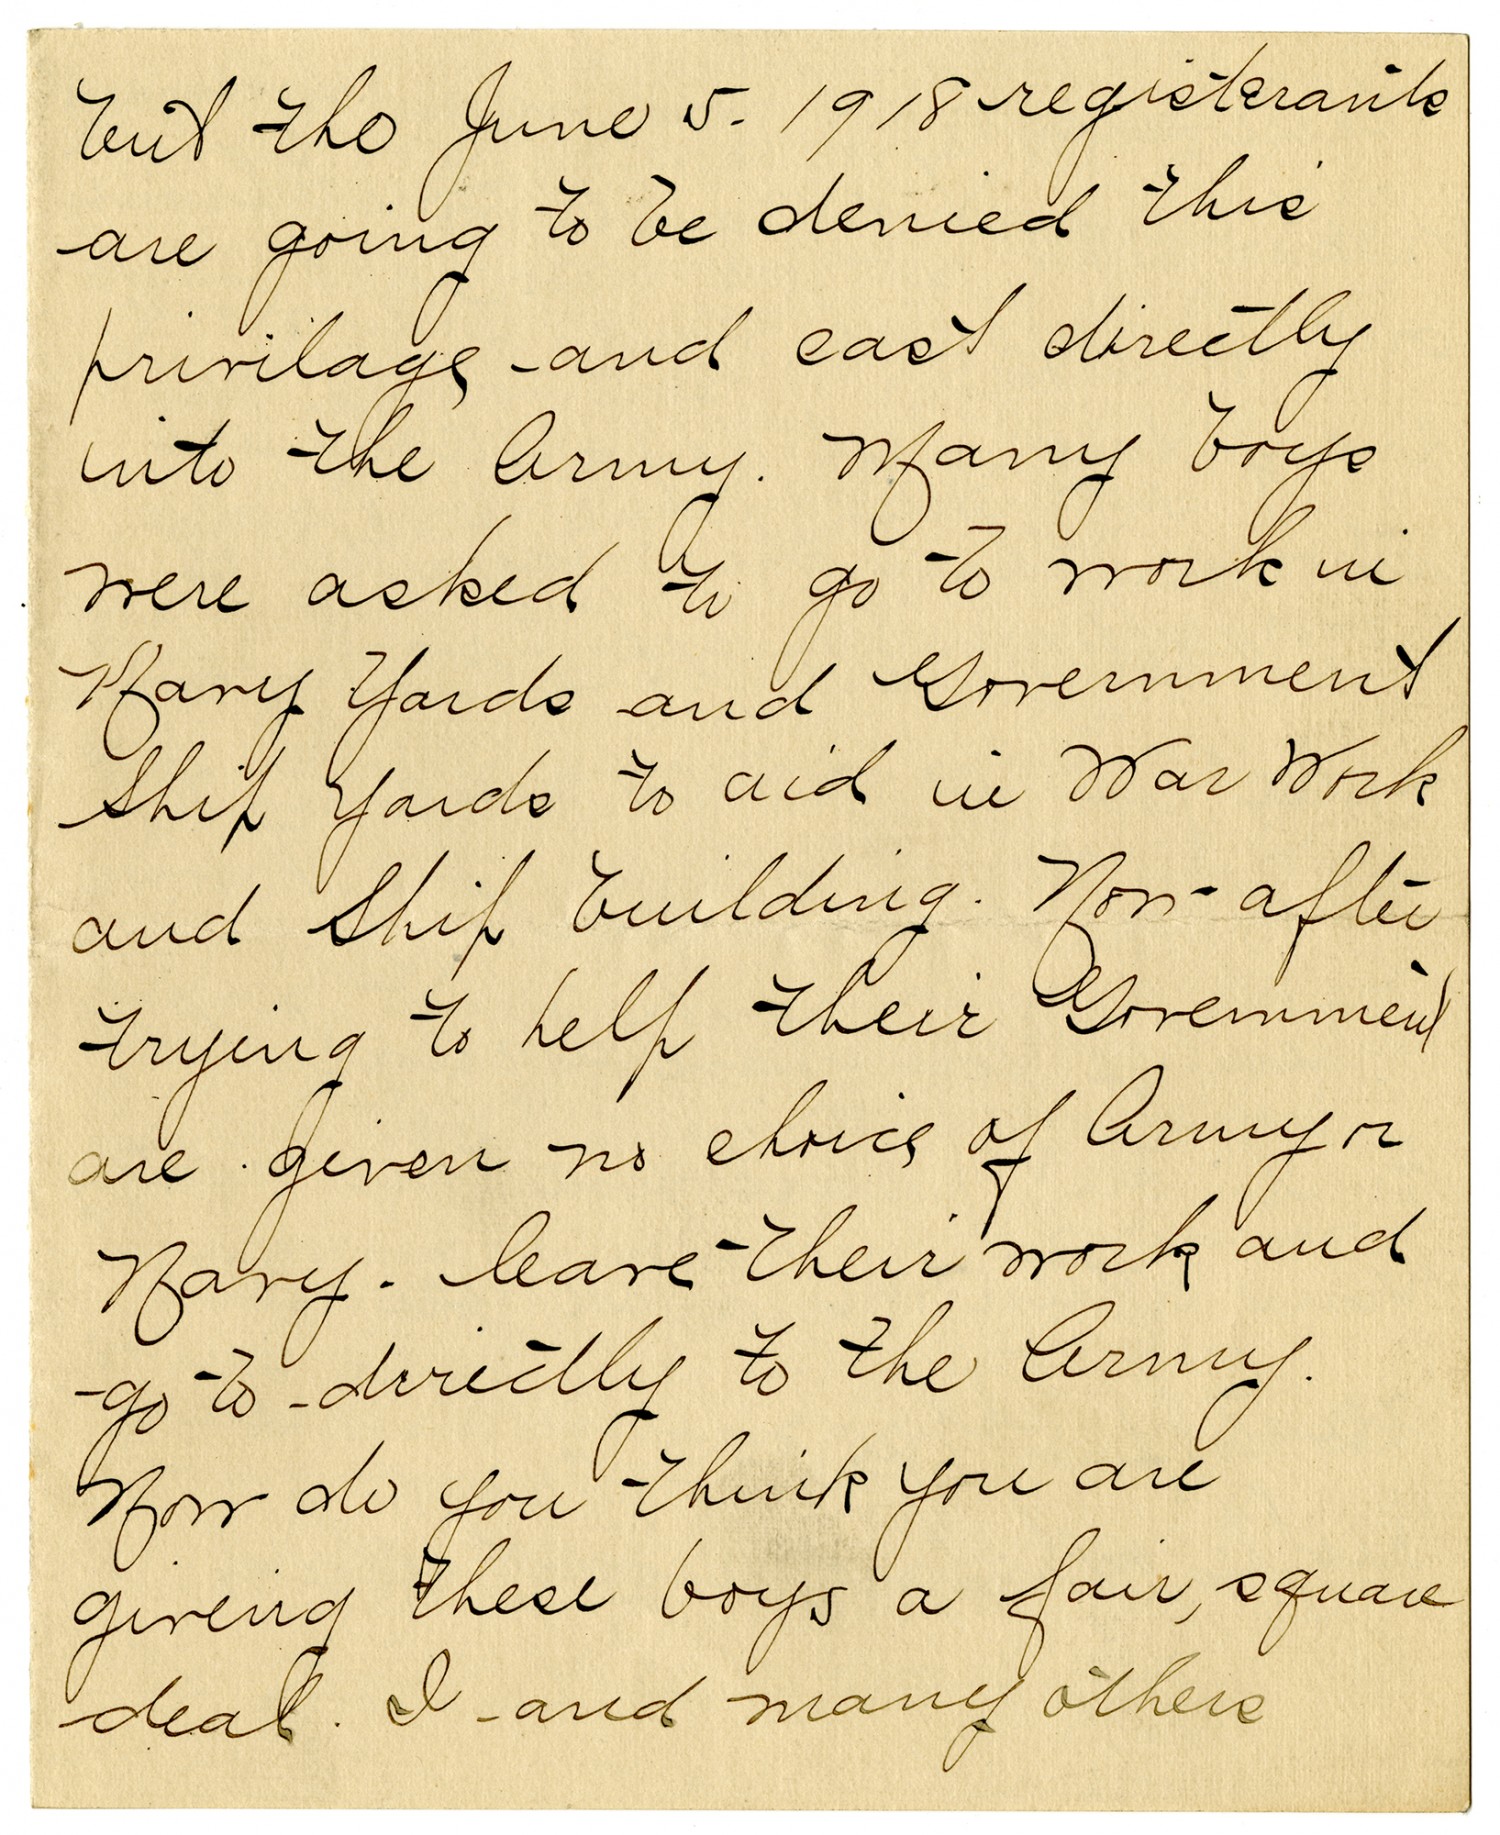 but the June 5. 1918 registrants
are going to be denied this
privilage and cast directly
into the Army. Many boys
were asked to go to work in
Navy Yards and Government
Ship Yards to aid in War Work
and Ship building. Now after
trying to help their Government
are given no choice of Army or
Navy. leave their work and
go to directly to the Army.
Now do you think you are
giveing these boys a fair, square
deal. I and many others